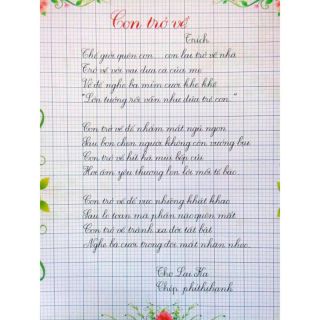 Con trở về
Trích
Thế giới quên con... con lại trở về nhà
Trở về với vai dựa cả của mẹ
Về để nghe ba mỉm cười khe khẽ
"Lớn tướng rồi vẫn như đứa trẻ con."
Con trở về để nhắm mắt ngủ ngon
Sau bon chen người không còn vướng bụi
Con trở về hít hà mùi bếp củi
Hơi ấm yêu thương len lỏi mỗi tế bào.
Con trở về để vực những khát khao
Sau lo toan mà phần nào quên mất
Con trở về tránh xa đời tất bật
Nghe ba cười trong đôi mắt nhăn nheo.
Thơ Lai Ka
Chép phithihanh